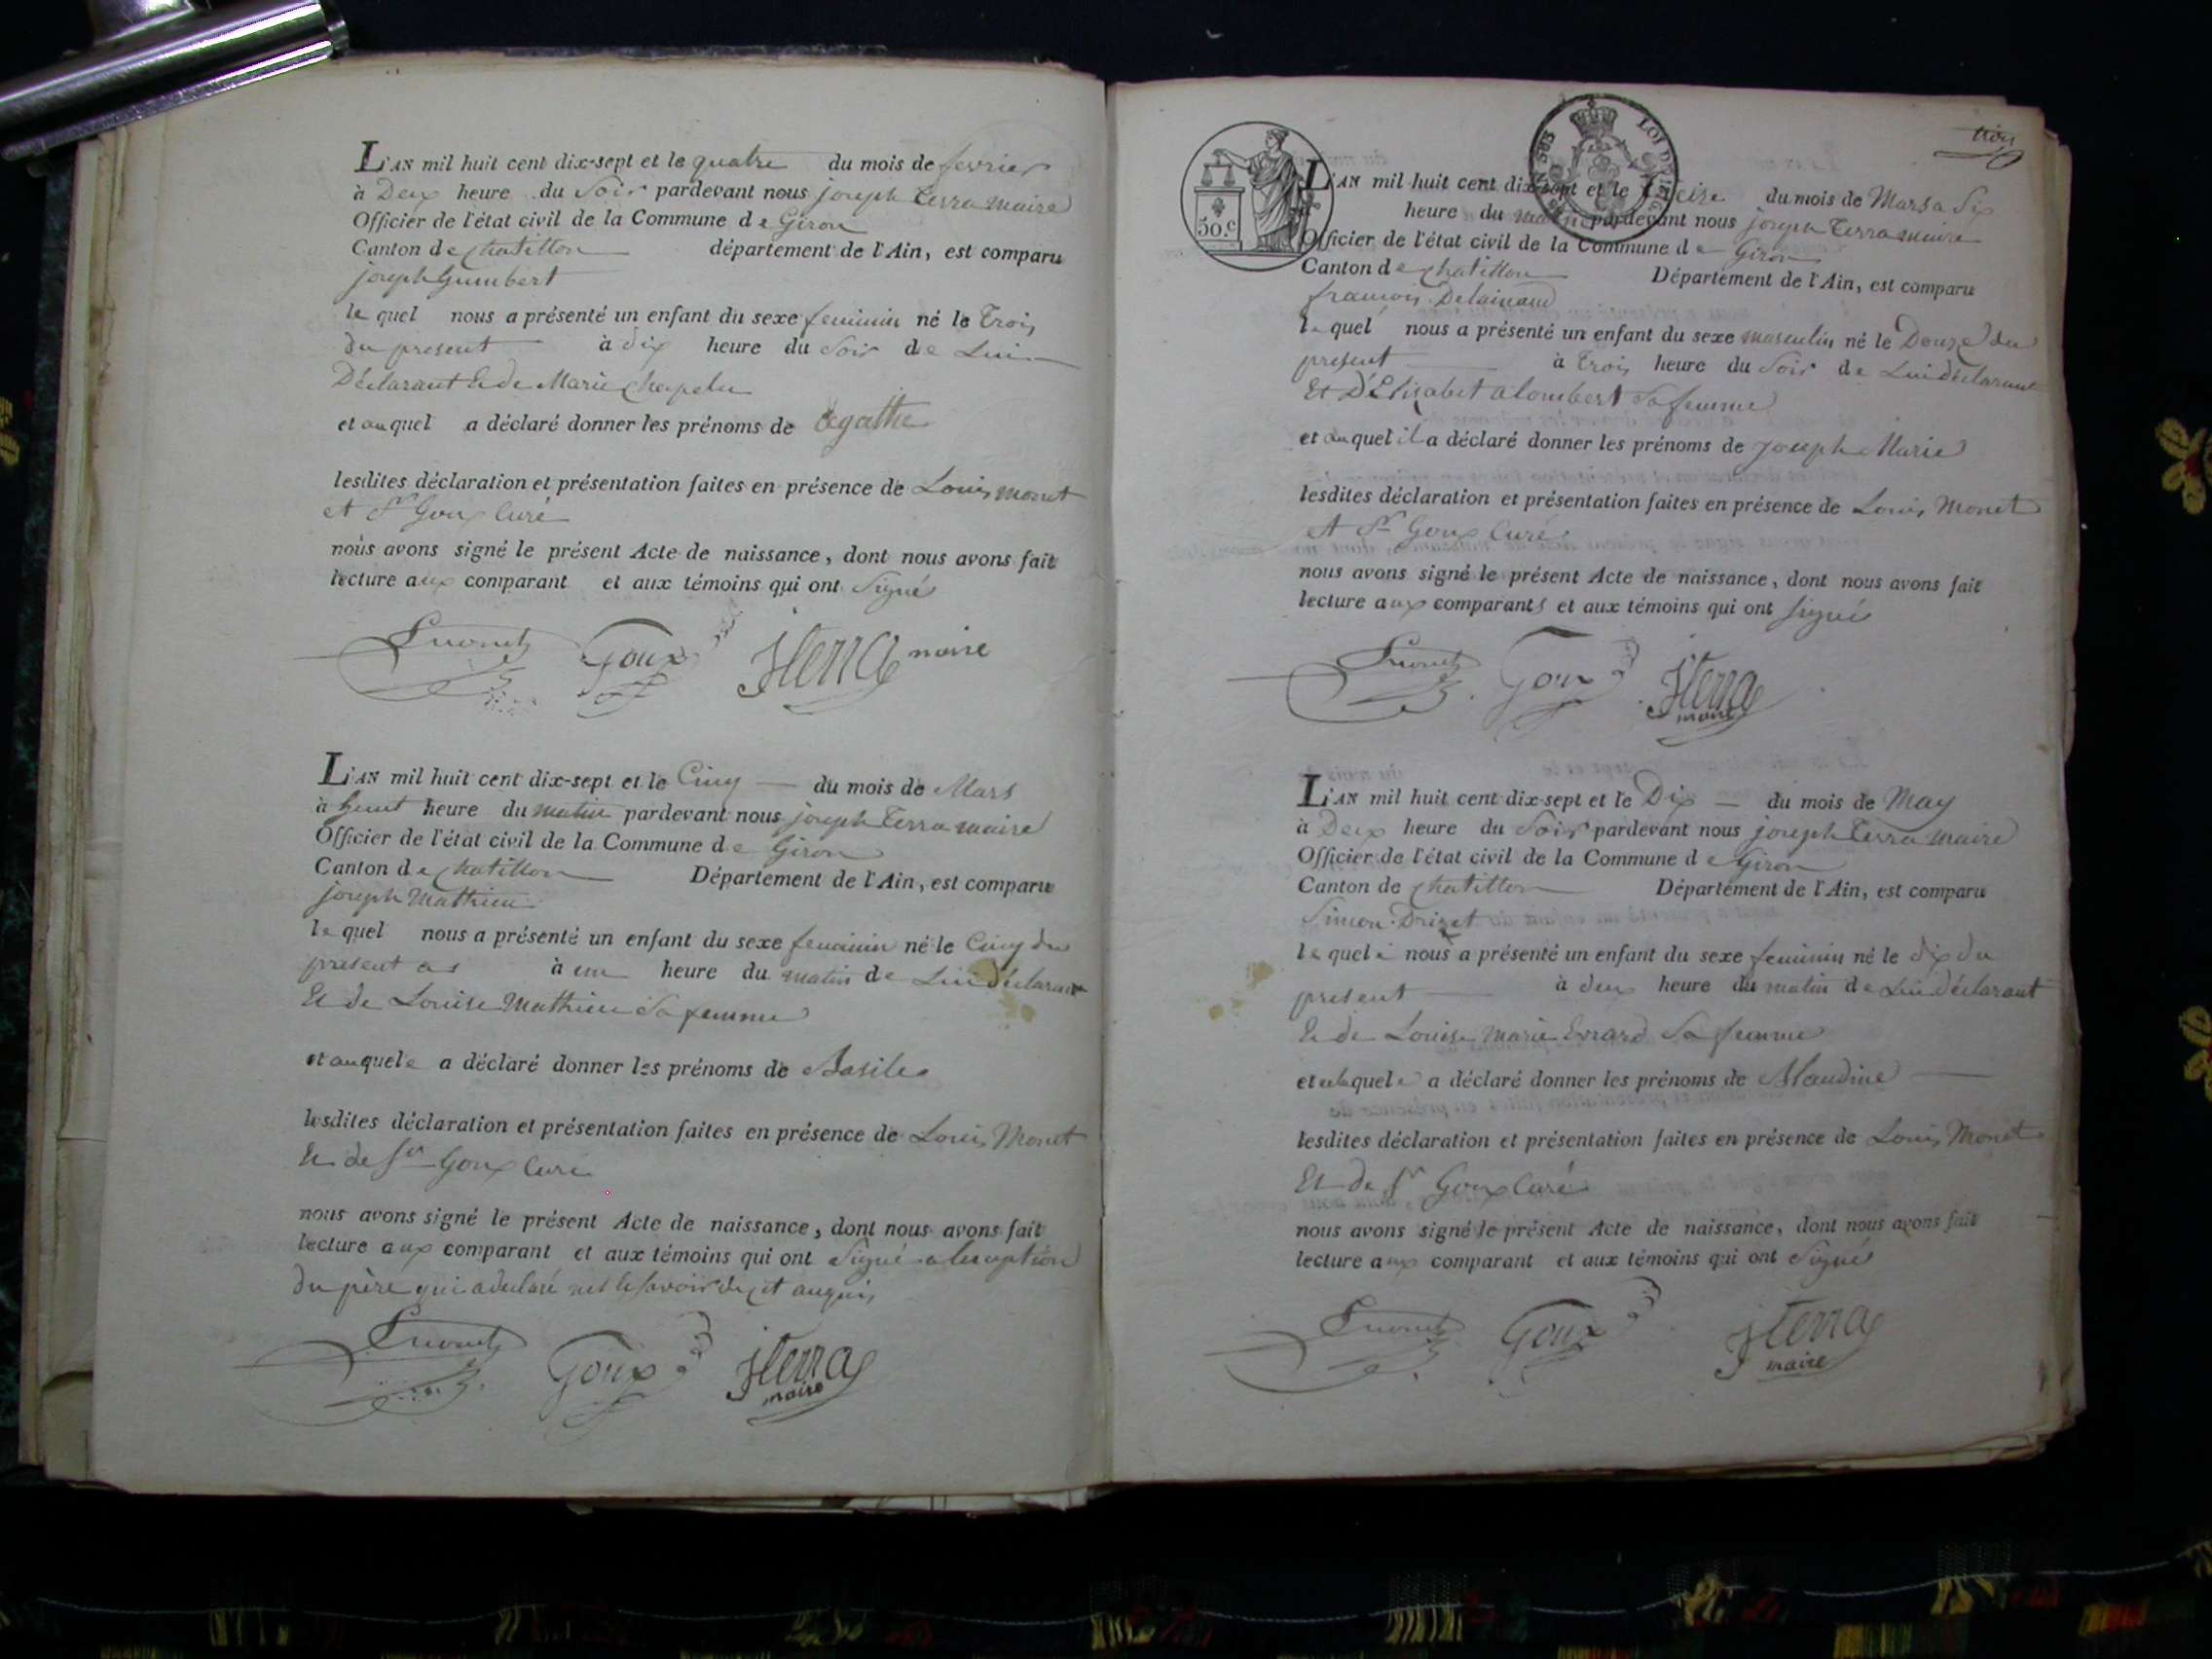 L'AN mil huit cent dix-sept et le quatre du mois de fevrier
à Deux heure du Soir pardevant nous joseph Terra maire
Officier de l'état civil de la Commune de Giron
Canton de chatillon département de l'Ain, est comparu
joseph Gumbert
le quel nous a présenté un enfant du sexe feminin né le Trois
du present à dix heure du Soir de Lui
Déclarant Et de Marie Chapelu
et au quel a déclaré donner les prénoms de agathe
lesdites déclaration et présentation faites en présence de Louis monet
et Sr Goux Curé
nous avons signé le présent Acte de naissance, dont nous avons fait
lecture aux comparant et aux témoins qui ont Signé
Lmonet Goux JTerra maire
L'AN mil huit cent dix-sept et le Cinq du mois de Mars
à huit heure du matin pardevant nous joseph Terra maire
Officier de l'état civil de la Commune de Giron
Canton de chatillon Département de l'Ain, est comparu
joseph Mathieu
le quel nous a présenté un enfant du sexe feminin né le Cinq du
present à un heure du matin de Lui déclarant
Et de Louise Mathieu Sa femme
et au quele a déclaré donner les prénoms de Basile
lesdites déclaration et présentation faites en présence de Louis Monet
Et de Sr Goux Curé
nous avons signé le présent Acte de naissance, dont nous avons fait
lecture aux comparant et aux témoins qui ont Signé a l'exception
du père qui a declaré
Lmonet Goux JTerra
maire
trois
50.c
L'AN mil huit cent dix-sept et le treize du mois de Mars a Six
heure du matin pardevant nous joseph Terra maire
Officier de l'état civil de la Commune de Giron
Canton de chatillon Département de l'Ain, est comparu
francois Delainaud
le quel nous a présenté un enfant du sexe masculin né le Douze du
present à Trois heure du Soir de Lui déclarant
Et D'Elisabet alombert Sa femme
et au quel il a déclaré donner les prénoms de joseph Marie
lesdites déclaration et présentation faites en présence de Louis Monet
et Sr Goux Curé
nous avons signé le présent Acte de naissance, dont nous avons fait
lecture aux comparants et aux témoins qui ont signé
Lmonet Goux JTerra
maire
L'AN mil huit cent dix-sept et le Dix du mois de May
à Deux heure du Soir pardevant nous joseph Terra maire
Officier de l'état civil de la Commune de Giron
Canton de chatillon Département de l'Ain, est comparu
Simon Brizet
le quel nous a présenté un enfant du sexe feminin né le dix du
present à deux heure du matin de Lui déclarant
Et de Louise Marie Evrard Sa femme
et a laquele a déclaré donner les prénoms de Blandine
lesdites déclaration et présentation faites en présence de Louis Monet
Et de Sr Goux Curé
nous avons signé le présent Acte de naissance, dont nous avons fait
lecture aux comparant et aux témoins qui ont Signé
Lmonet Goux JTerra
maire